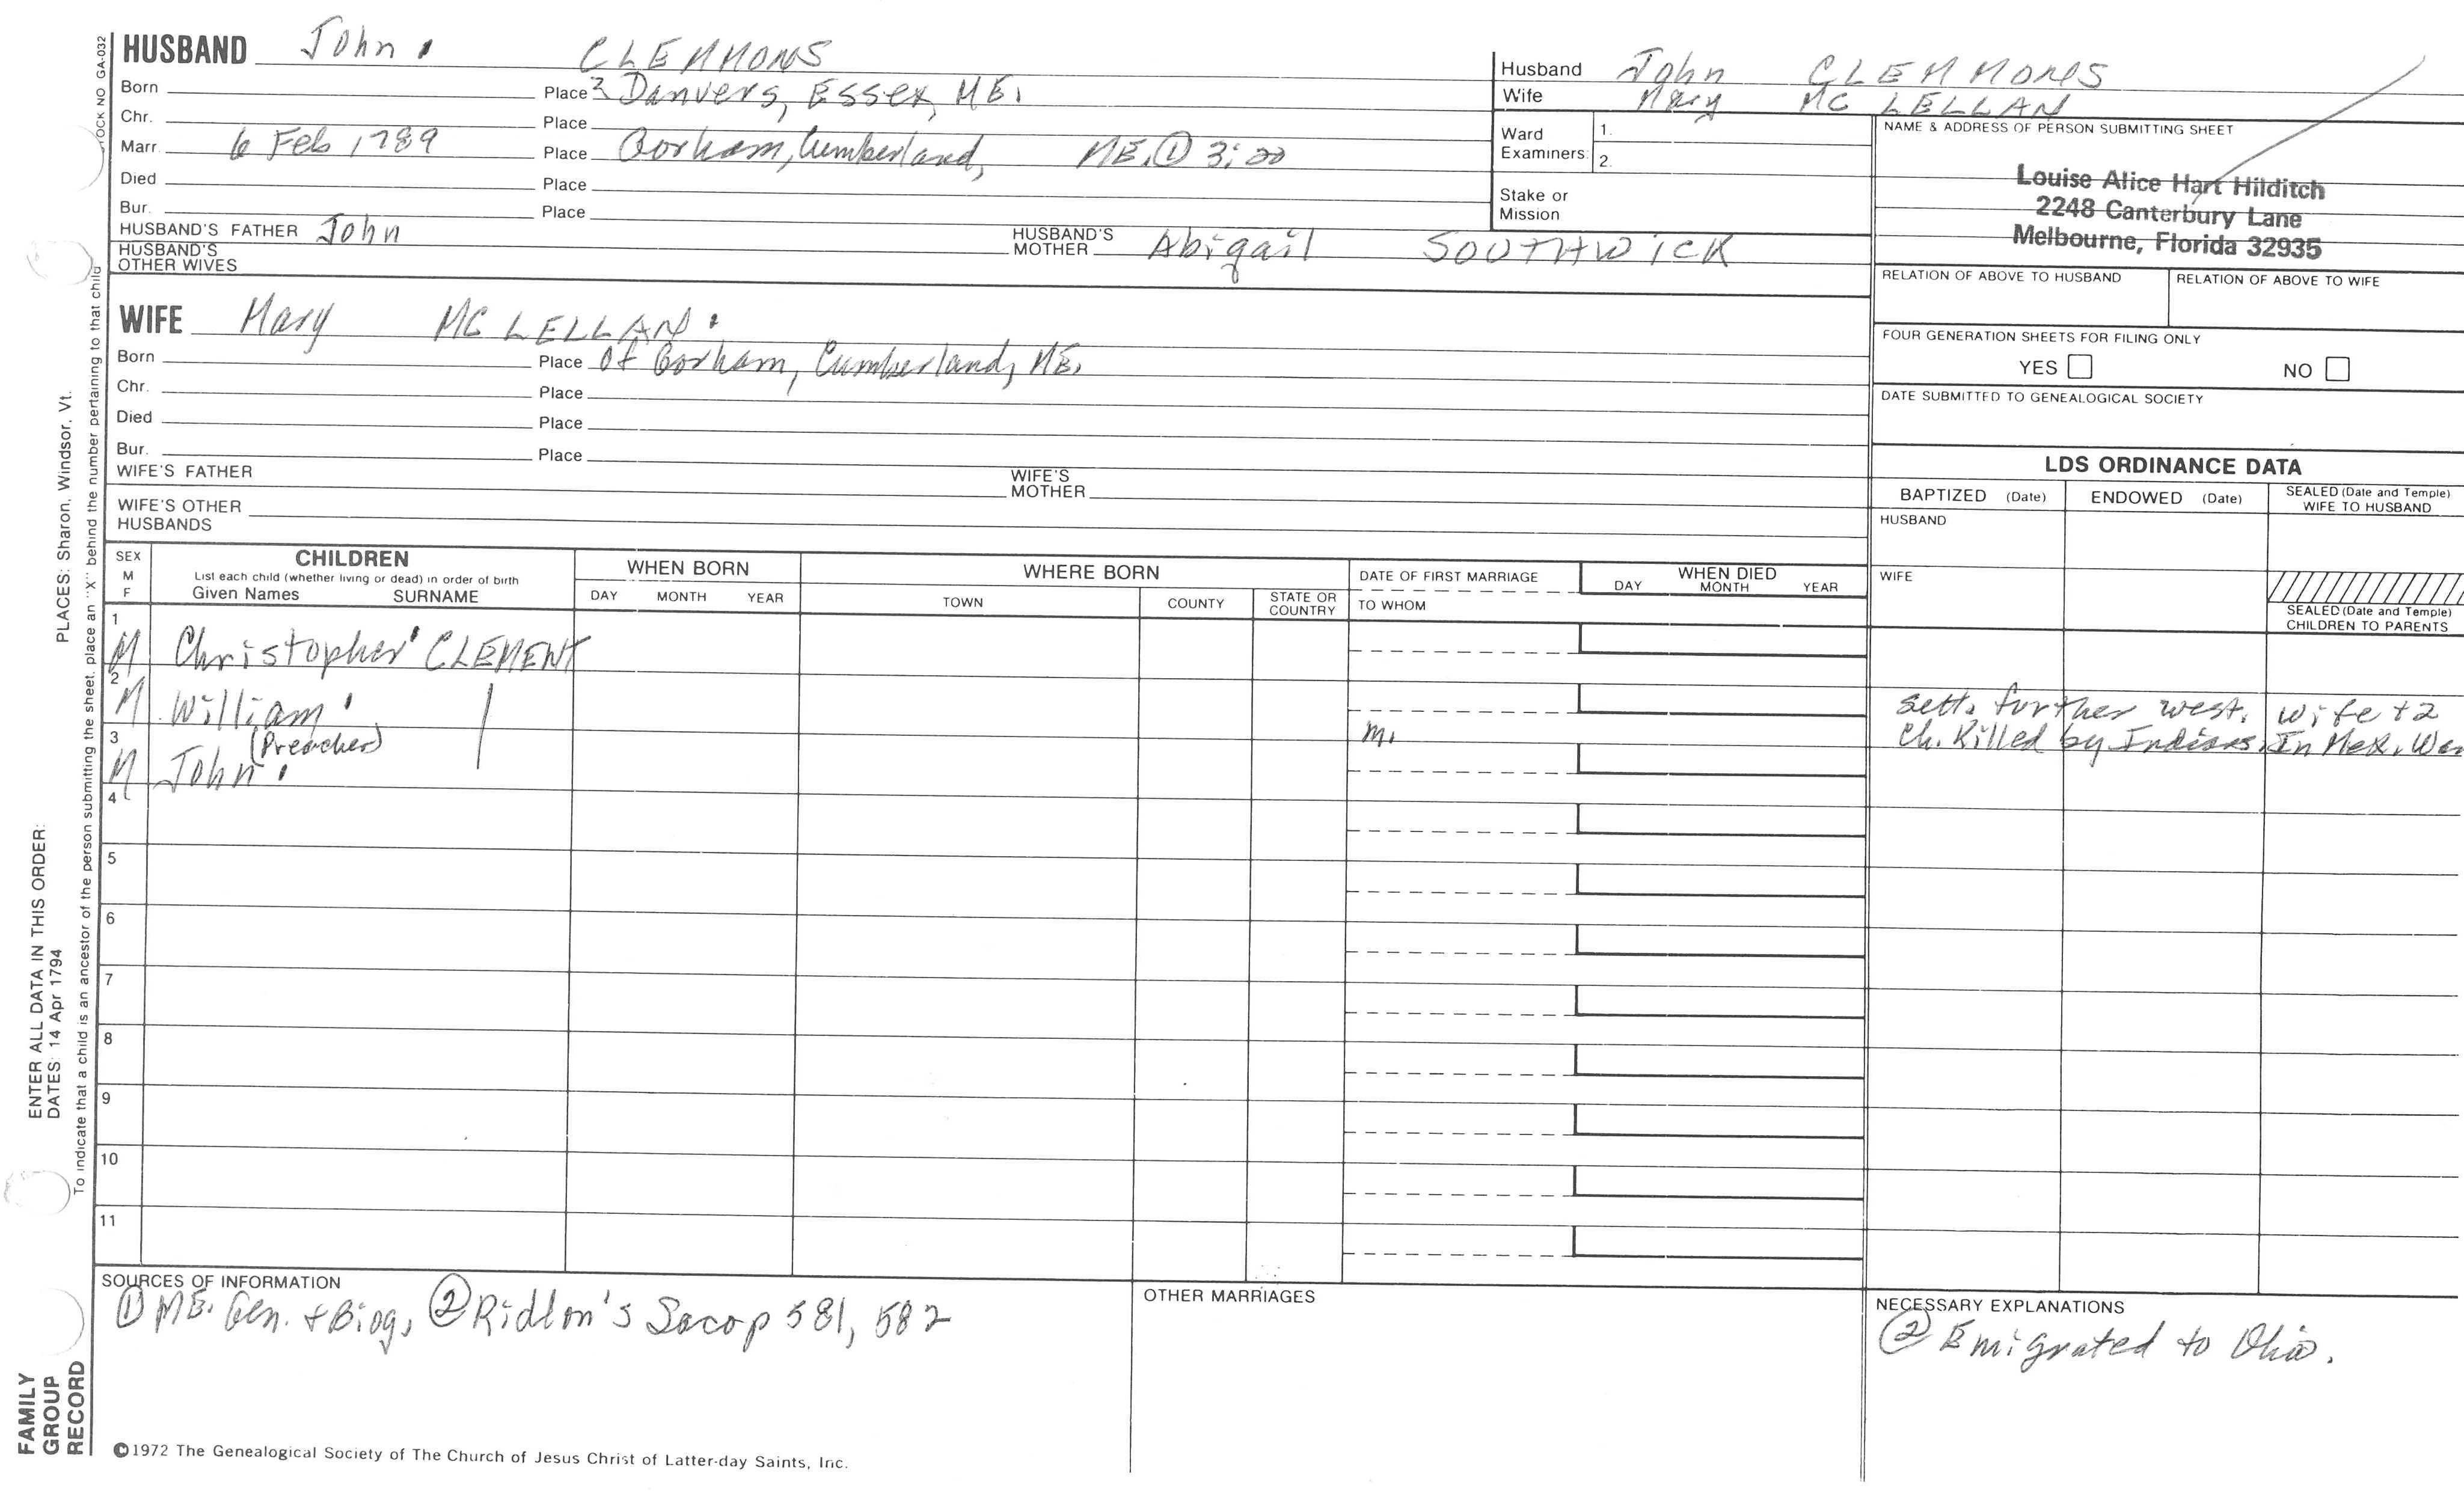 HUSBAND John CLEMMONS
Born Place ? Danvers, Essex, ME.
Chr. Place
Marr. 6 Feb 1789 Place Gorham, Cumberland, ME. ① 3:20
Died Place
Bur. Place
HUSBAND'S FATHER John HUSBAND'S MOTHER Abigail SOUTHWICK
HUSBAND'S OTHER WIVES
WIFE Mary MC LELLAN
Born Place Of Gorham, Cumberland, ME.
Chr. Place
Died Place
Bur. Place
WIFE'S FATHER WIFE'S MOTHER
WIFE'S OTHER HUSBANDS
Husband John CLEMMONS
Wife Mary MC LELLAN
Ward Examiners: 1.
2.
Stake or Mission
NAME & ADDRESS OF PERSON SUBMITTING SHEET
Louise Alice Hart Hilditch
2248 Canterbury Lane
Melbourne, Florida 32935
RELATION OF ABOVE TO HUSBAND RELATION OF ABOVE TO WIFE
FOUR GENERATION SHEETS FOR FILING ONLY
YES NO
DATE SUBMITTED TO GENEALOGICAL SOCIETY
LDS ORDINANCE DATA
BAPTIZED (Date) ENDOWED (Date) SEALED (Date and Temple) WIFE TO HUSBAND
HUSBAND
WIFE
SEALED (Date and Temple) CHILDREN TO PARENTS
SEX M F
CHILDREN
List each child (whether living or dead) in order of birth
Given Names SURNAME
WHEN BORN
DAY MONTH YEAR
WHERE BORN
TOWN COUNTY STATE OR COUNTRY
DATE OF FIRST MARRIAGE
TO WHOM
WHEN DIED
DAY MONTH YEAR
1 M Christopher CLEMENT
2 M William (Preacher) m. Sett. further west. Wife + 2
Ch. Killed by Indians. In Mex. War
3 M John
4
5
6
7
8
9
10
11
SOURCES OF INFORMATION
① ME. Gen. + Biog, ② Ridlon's Saco p 581, 582
OTHER MARRIAGES
NECESSARY EXPLANATIONS
② Emigrated to Ohio.
©1972 The Genealogical Society of The Church of Jesus Christ of Latter-day Saints, Inc.
FAMILY
GROUP
RECORD
ENTER ALL DATA IN THIS ORDER:
DATES: 14 Apr 1794
PLACES: Sharon, Windsor, Vt.
To indicate that a child is an ancestor of the person submitting the sheet, place an "X" behind the number pertaining to that child
STOCK NO GA-032